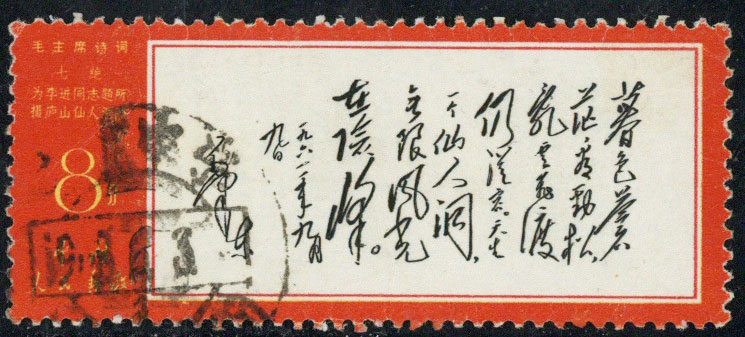 毛主席诗词
七绝
为李进同志题所
摄庐山仙人
8分
人民邮政
暮色蒼
茫看勁松，
亂雲飛渡
仍從容。天生
一个仙人洞，
无限風光
在險峰。
一九六一年九月
九日
毛泽东